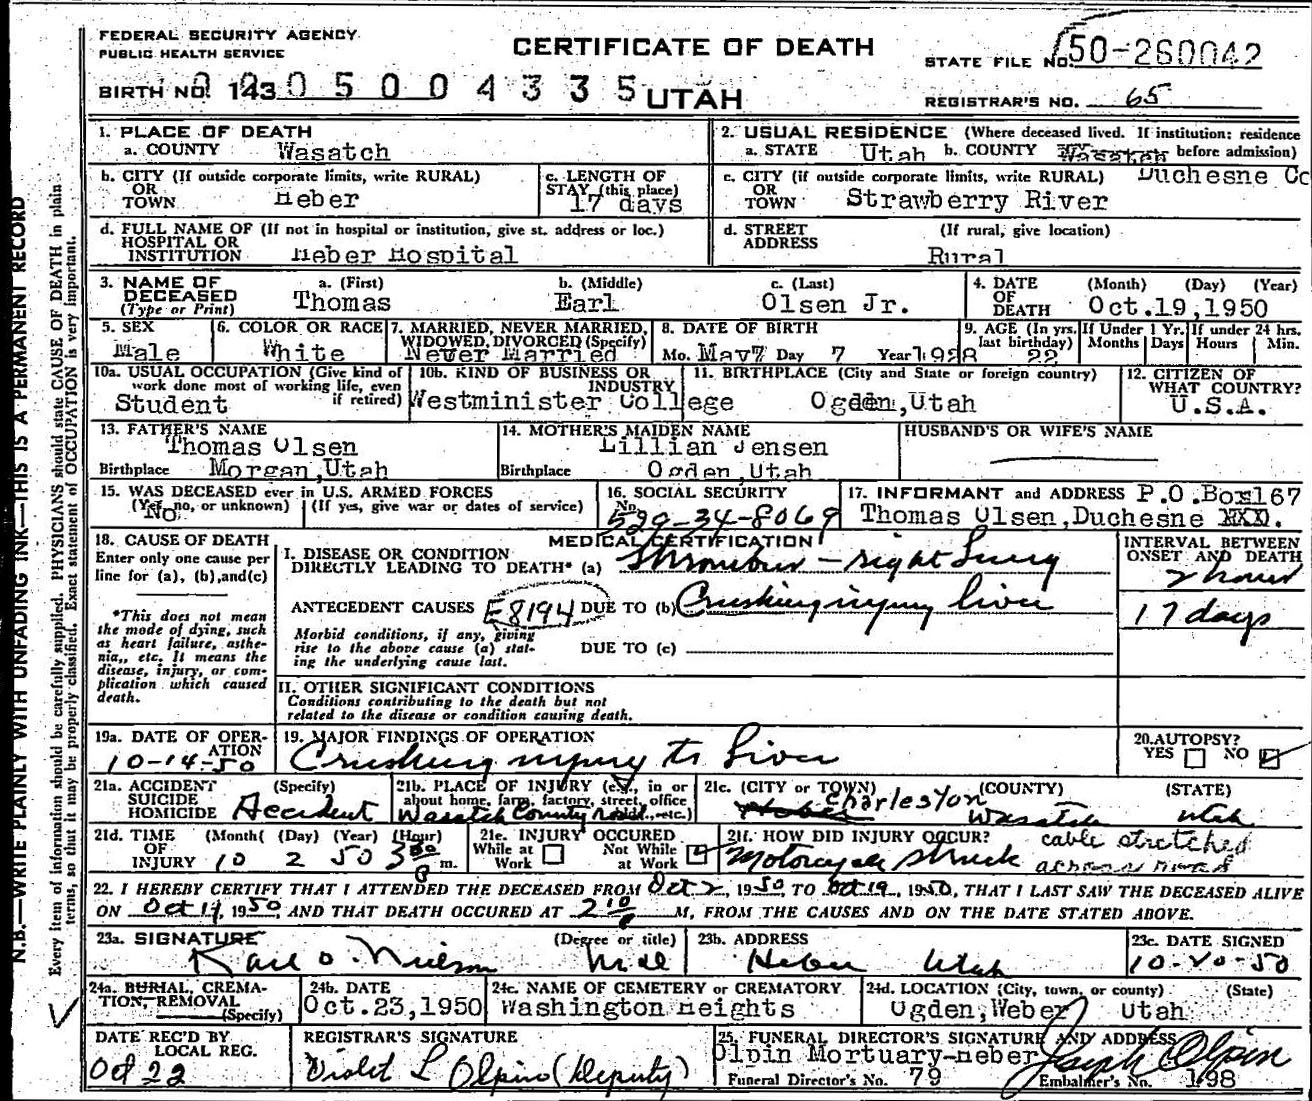 FEDERAL SECURITY AGENCY
PUBLIC HEALTH SERVICE
CERTIFICATE OF DEATH
STATE FILE NO. 50-260042
BIRTH NO. 143 0 5 0 0 4 3 3 5 UTAH
REGISTRAR'S NO. 65
1. PLACE OF DEATH
a. COUNTY Wasatch
2. USUAL RESIDENCE (Where deceased lived. If institution: residence
a. STATE Utah b. COUNTY Wasatch before admission)
Duchesne Co
b. CITY (If outside corporate limits, write RURAL)
OR
TOWN Heber
c. LENGTH OF
STAY (this place)
17 days
c. CITY (if outside corporate limits, write RURAL)
OR
TOWN Strawberry River
d. FULL NAME OF (If not in hospital or institution, give st. address or loc.)
HOSPITAL OR
INSTITUTION Heber Hospital
d. STREET (If rural, give location)
ADDRESS Rural
3. NAME OF DECEASED (Type or Print)
a. (First) b. (Middle) c. (Last)
Thomas Earl Olsen Jr.
4. DATE OF DEATH (Month) (Day) (Year)
Oct.19,1950
5. SEX
Male
6. COLOR OR RACE
White
7. MARRIED, NEVER MARRIED,
WIDOWED, DIVORCED (Specify)
Never Married
8. DATE OF BIRTH
Mo. May7 Day 7 Year 1928
9. AGE (In yrs. last birthday)
22
If Under 1 Yr.
Months Days
If under 24 hrs.
Hours Min.
10a. USUAL OCCUPATION (Give kind of
work done most of working life, even
if retired)
Student
10b. KIND OF BUSINESS OR
INDUSTRY
Westminister College
11. BIRTHPLACE (City and State or foreign country)
Ogden,Utah
12. CITIZEN OF
WHAT COUNTRY?
U.S.A.
13. FATHER'S NAME
Thomas Olsen
Birthplace Morgan,Utah
14. MOTHER'S MAIDEN NAME
Lillian Jensen
Birthplace Ogden,Utah
HUSBAND'S OR WIFE'S NAME
15. WAS DECEASED ever in U.S. ARMED FORCES
(Yes, no, or unknown) (If yes, give war or dates of service)
No
16. SOCIAL SECURITY
No.
529-34-8069
17. INFORMANT and ADDRESS P.O.Box167
Thomas Olsen,Duchesne XXX.
18. CAUSE OF DEATH
Enter only one cause per
line for (a), (b),and(c)
*This does not mean
the mode of dying, such
as heart failure, asthe-
nia,, etc. It means the
disease, injury, or com-
plication which caused
death.
MEDICAL CERTIFICATION
I. DISEASE OR CONDITION
DIRECTLY LEADING TO DEATH* (a) Thrombus - right Lung
ANTECEDENT CAUSES E8194 DUE TO (b) Crushing injury liver
Morbid conditions, if any, giving
rise to the above cause (a) stat-
ing the underlying cause last.
DUE TO (c)
INTERVAL BETWEEN
ONSET AND DEATH
2 hours
17 days
II. OTHER SIGNIFICANT CONDITIONS
Conditions contributing to the death but not
related to the disease or condition causing death.
19a. DATE OF OPER-
ATION
10-14-50
19. MAJOR FINDINGS OF OPERATION
Crushing injury to Liver
20. AUTOPSY?
YES NO
21a. ACCIDENT
SUICIDE
HOMICIDE
(Specify)
Accident
21b. PLACE OF INJURY (e.g., in or
about home, farm, factory, street, office
etc.)
Wasatch County Road
21c. (CITY or TOWN) (COUNTY) (STATE)
Heber Charleston Wasatch Utah
21d. TIME (Month) (Day) (Year) (Hour)
OF
INJURY 10 2 50 3 00 P m.
21e. INJURY OCCURED
While at Work Not While at Work
21f. HOW DID INJURY OCCUR?
Motorcycle struck cable stretched
across road
22. I HEREBY CERTIFY THAT I ATTENDED THE DECEASED FROM Oct 2, 1950, TO Oct 19, 1950, THAT I LAST SAW THE DECEASED ALIVE
ON Oct 19, 1950 AND THAT DEATH OCCURED AT 2 10 M, FROM THE CAUSES AND ON THE DATE STATED ABOVE.
23a. SIGNATURE (Degree or title)
Karl O. Nielson Md
23b. ADDRESS
Heber Utah
23c. DATE SIGNED
10-20-50
24a. BURIAL, CREMA-
TION, REMOVAL
(Specify)
24b. DATE
Oct.23,1950
24c. NAME OF CEMETERY or CREMATORY
Washington Heights
24d. LOCATION (City, town, or county) (State)
Ogden,Weber Utah
DATE REC'D BY
LOCAL REG.
Oct 22
REGISTRAR'S SIGNATURE
Violet L Olpin (Deputy)
25. FUNERAL DIRECTOR'S SIGNATURE AND ADDRESS
Olpin Mortuary-Heber Joseph Olpin
Funeral Director's No. 79 Embalmer's No. 198
N.B.—WRITE PLAINLY WITH UNFADING INK—THIS IS A PERMANENT RECORD
Every item of information should be carefully supplied. PHYSICIANS should state CAUSE OF DEATH in plain
terms, so that it may be properly classified. Exact statement of OCCUPATION is very important.